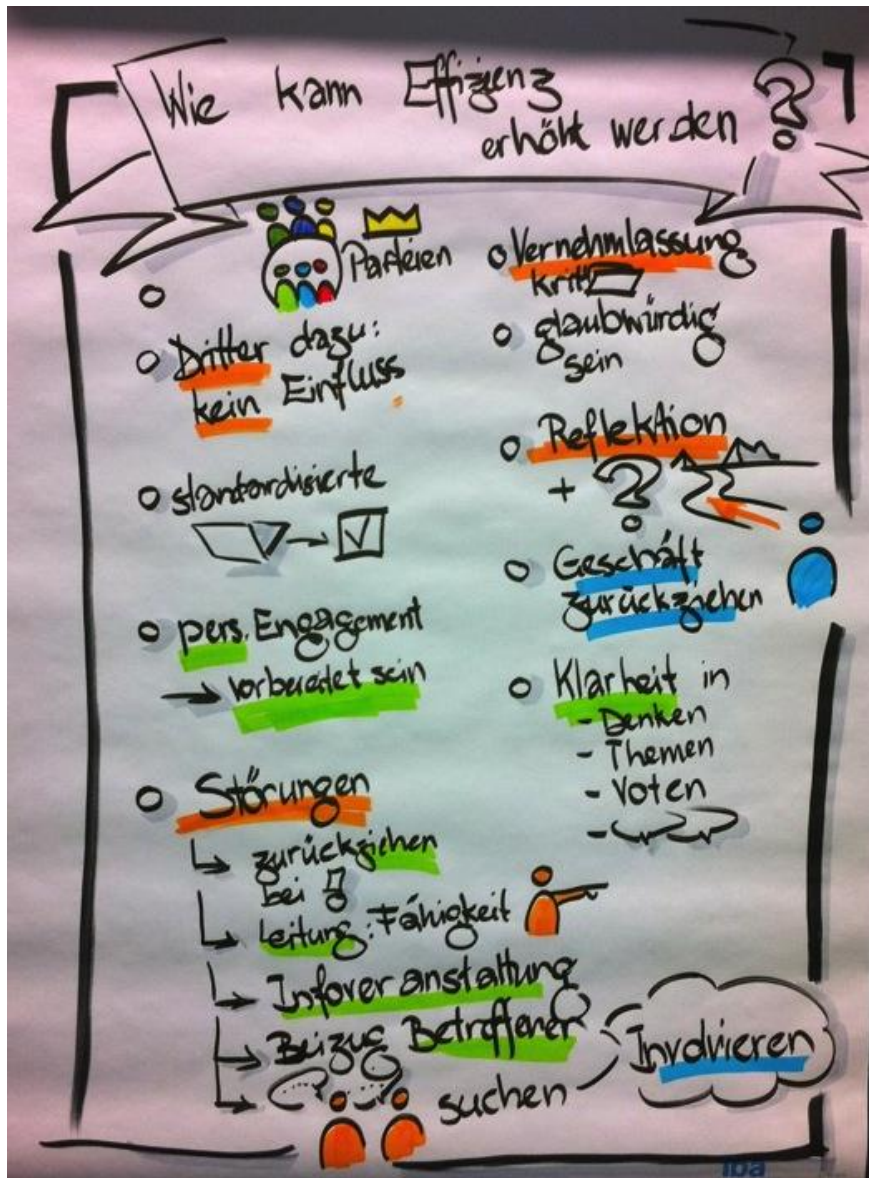 Wie kann Effizienz
erhöht werden ?
Parteien
Dritter dazu:
kein Einfluss
standardisierte
pers. Engagement
→ vorbereitet sein
Störungen
zurückziehen
bei
Leitung: Fähigkeit
Infoveranstaltung
Beizug Betroffener
suchen
Involvieren
Vernehmlassung
glaubwürdig
sein
Reflektion
+ ?
Geschäft
zurückziehen
Klarheit in
- Denken
- Themen
- Voten
-
iba